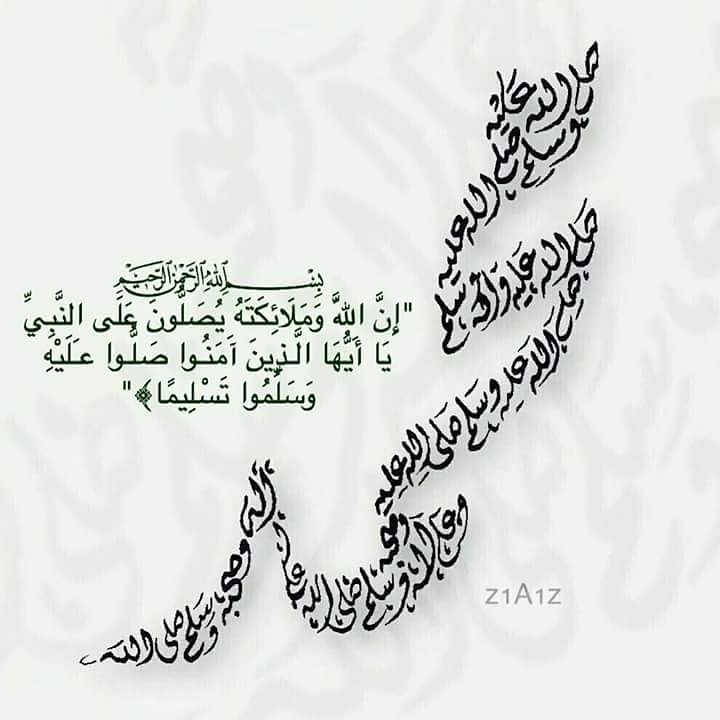 صلى الله عليه
وسلم صلى الله عليه
صلى الله عليه وآله وسلم
صلى الله عليه وسلم صلى الله عليه
وصحبه
وعلى آله وسلم صلى الله عليه
آله وصحبه وسلم صلى الله
بسم الله الرحمن الرحيم
"إِنَّ اللَّهَ وَمَلَائِكَتَهُ يُصَلُّونَ عَلَى النَّبِيِّ
يَا أَيُّهَا الَّذِينَ آمَنُوا صَلُّوا عَلَيْهِ
وَسَلِّمُوا تَسْلِيمًا﴾"
z1A1z